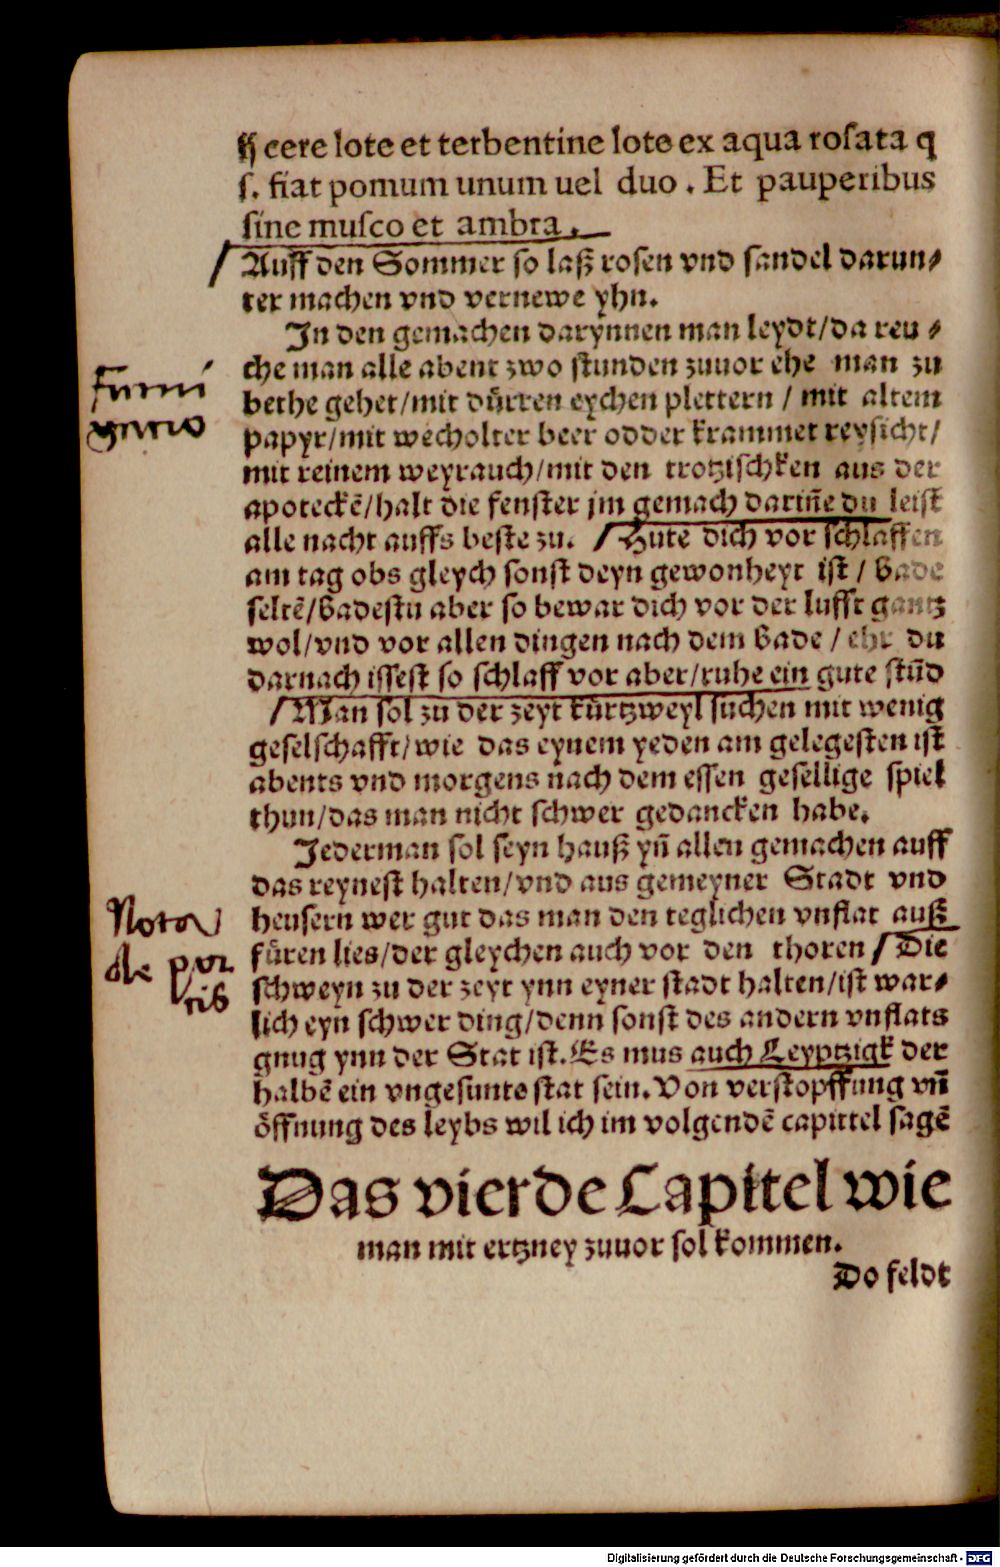 ʒʒ cere lote et terbentine lote ex aqua rosata q
ſ. fiat pomum unum uel duo . Et pauperibus
ſine muſco et ambra.
Auff den Sommer so laß rosen vnd sandel darun⸗
ter machen vnd vernewe yhn.
In den gemachen darynnen man leydt/da reu⸗
che man alle abent zwo stunden zuuor ehe man zu
bethe gehet/mit dürren eychen plettern / mit altem
papyr/mit wecholter beer odder krammet reysicht/
mit reinem weyrauch/mit den trotzischken aus der
apoteckē/halt die fenster jm gemach dariñe du leist
alle nacht auffs beste zu. Hute dich vor schlaffen
am tag obs gleych sonst deyn gewonheyt ist / Bade
seltē/Badestu aber so bewar dich vor der lufft gantz
wol/vnd vor allen dingen nach dem Bade / ehr du
darnach issest so schlaff vor aber/ruhe ein gute stūd
Man sol zu der zeyt kürtzweyl suchen mit wenig
geselschafft/wie das eynem yeden am gelegesten ist
abents vnd morgens nach dem essen gesellige spiel
thun/das man nicht schwer gedancken habe.
Jederman sol seyn hauß yñ allen gemachen auff
das reynest halten/vnd aus gemeyner Stadt vnd
heusern wer gut das man den teglichen vnflat auß
füren lies/der gleychen auch vor den thoren / Die
schweyn zu der zeyt ynn eyner stadt halten/ist war⸗
lich eyn schwer ding/denn sonst des andern vnflats
gnug ynn der Stat ist. Es mus auch Leyptzigk der
halbē ein vngesunte stat sein. Von verstopffung vñ
öffnung des leybs wil ich im volgendē capittel sagē
Das vierde Capitel wie
man mit ertzney zuuor sol kommen.
Do feldt
Nota
de por
cis
Digitalisierung gefördert durch die Deutsche Forschungsgemeinschaft - DFG